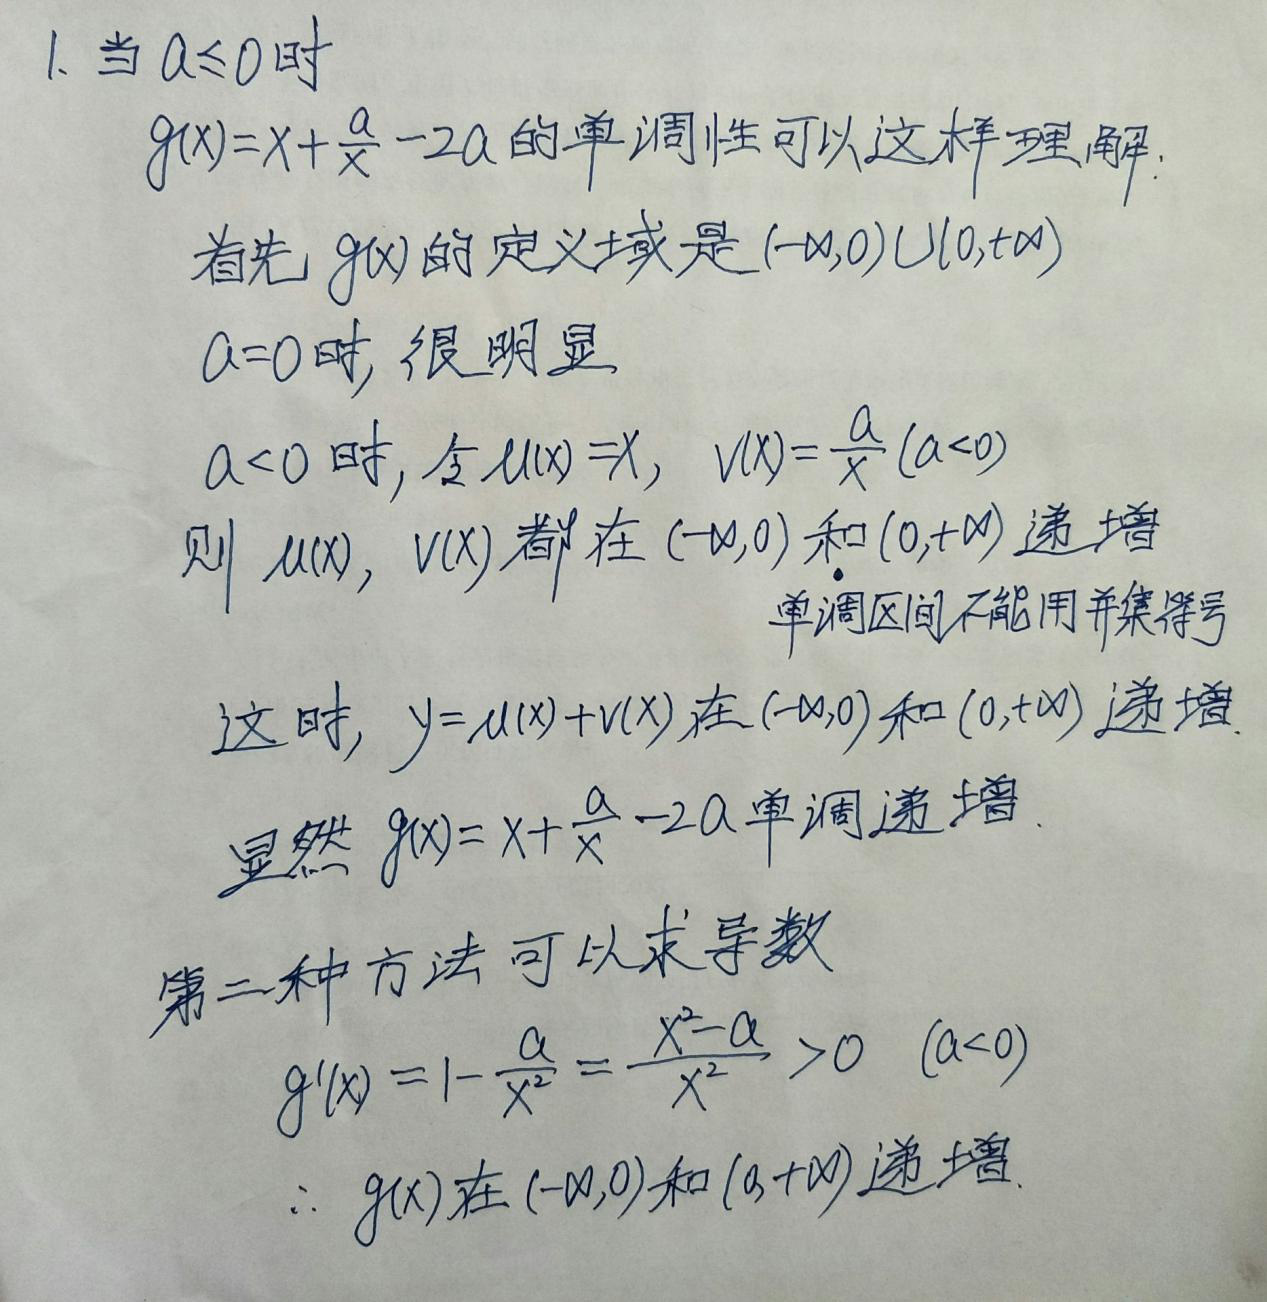 1. 当 a≤0时
g(x)=x+a/x-2a的单调性可以这样理解.
首先 g(x)的定义域是(-∞,0)∪(0,+∞)
a=0时,很明显
a<0时,令u(x)=x, v(x)=a/x (a<0)
则 u(x), v(x)都在(-∞,0)和(0,+∞)递增
单调区间不能用并集符号
这时, y=u(x)+v(x)在(-∞,0)和(0,+∞)递增.
显然 g(x)=x+a/x-2a单调递增.
第二种方法可以求导数
g'(x)=1-a/x²=(x²-a)/x²>0 (a<0)
∴ g(x)在(-∞,0)和(0,+∞)递增.